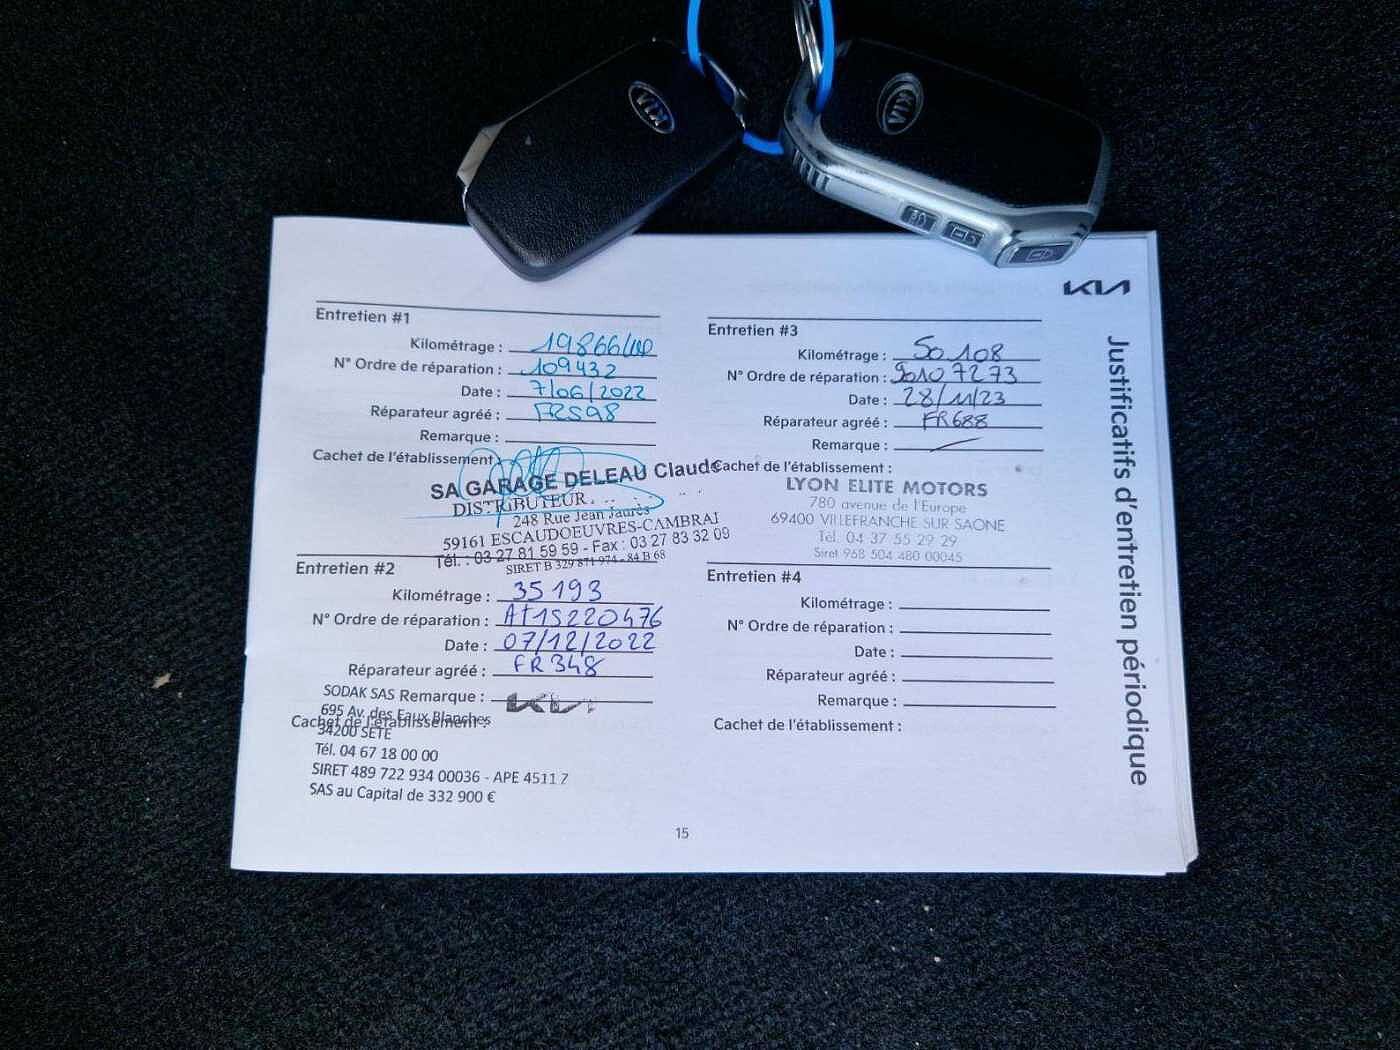 KIA
KIA
KIA
Justificatifs d'entretien périodique
Entretien #1
Kilométrage : 19866
N° Ordre de réparation : 109432
Date : 7/06/2022
Réparateur agréé : FR598
Remarque :
Cachet de l'établissement :
SA GARAGE DELEAU Claude
DISTRIBUTEUR
248 Rue Jean Jaurès
59161 ESCAUDOEUVRES-CAMBRAI
Tél. : 03 27 81 59 59 - Fax : 03 27 83 32 09
SIRET B 329 871 974 - 84 B 68
Entretien #2
Kilométrage : 35193
N° Ordre de réparation : AT15220476
Date : 07/12/2022
Réparateur agréé : FR348
Remarque :
KIA
Cachet de l'établissement :
SODAK SAS
695 Av. des Eaux Blanches
34200 SETE
Tél. 04 67 18 00 00
SIRET 489 722 934 00036 - APE 4511 Z
SAS au Capital de 332 900 €
Entretien #3
Kilométrage : 50108
N° Ordre de réparation : 90107273
Date : 28/11/23
Réparateur agréé : FR688
Remarque :
Cachet de l'établissement :
LYON ELITE MOTORS
780 avenue de l'Europe
69400 VILLEFRANCHE SUR SAONE
Tél. 04 37 55 29 29
Siret 968 504 480 00045
Entretien #4
Kilométrage :
N° Ordre de réparation :
Date :
Réparateur agréé :
Remarque :
Cachet de l'établissement :
15